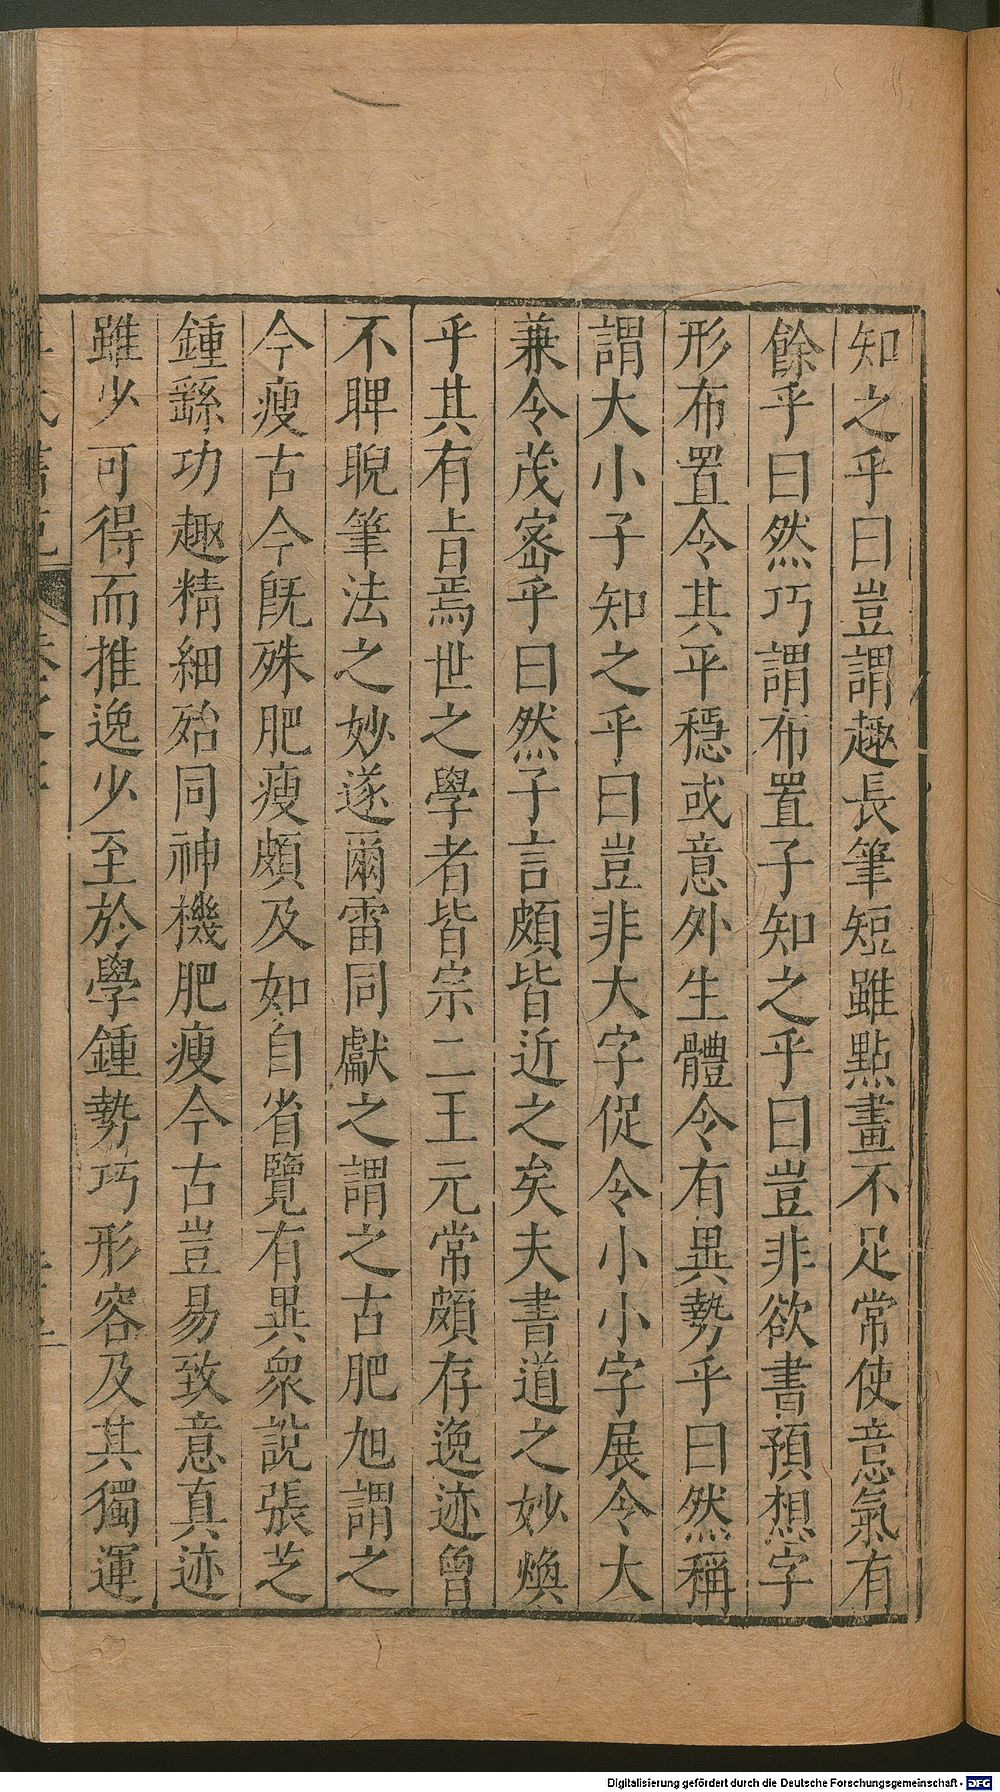 知之乎曰豈謂趣長筆短雖點畫不足常使意氣有
餘乎曰然巧謂布置子知之乎曰豈非欲書預想字
形布置令其平穩或意外生體令有異勢乎曰然稱
謂大小子知之乎曰豈非大字促令小小字展令大
兼令茂密乎曰然子言頗皆近之矣夫書道之妙煥
乎其有旨焉世之學者皆宗二王元常頗存逸迹曾
不睥睨筆法之妙遂爾雷同獻之謂之古肥旭謂之
今瘦古今既殊肥瘦頗及如自省覽有異衆說張芝
鍾繇功趣精細殆同神機肥瘦今古豈易致意真迹
雖少可得而推逸少至於學鍾勢巧形容及其獨運
Digitalisierung gefördert durch die Deutsche Forschungsgemeinschaft - DFG